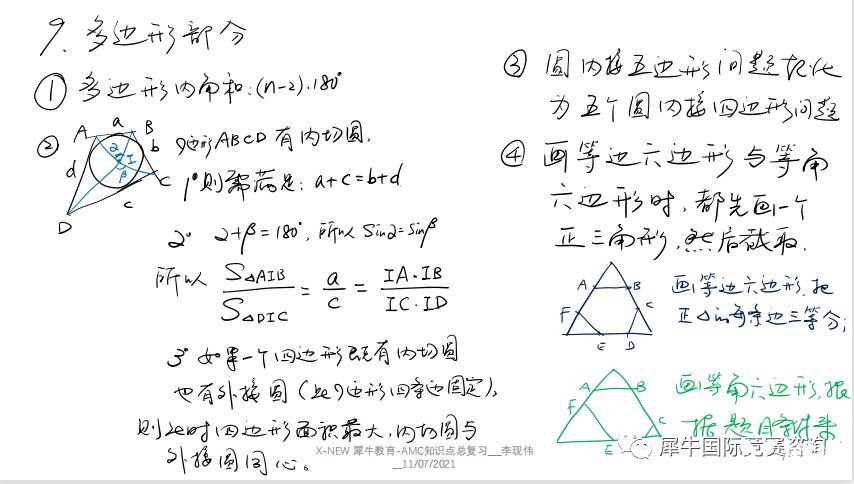 9、多边形部分
① 多边形内角和:(n-2)·180°
② 四边形ABCD有内切圆,
A a B
b
d
I
α
β
C
c
D
1° 则需满足: a+c=b+d
2° α+β=180°, 所以 sinα=sinβ
所以 S△AIB/S△DIC = a/c = IA·IB/IC·ID
3° 如果一个四边形既有内切圆
也有外接圆(此四边形四条边固定),
则此时四边形面积最大,内切圆与
外接圆同心。
③ 圆内接五边形问题转化
为五个圆内接四边形问题
④ 画等边六边形与等角
六边形时,都先画一个
正三角形,然后截取.
A B
F C
E D
画等边六边形,把
正△的每条边三等分;
A B
F C
E
画等角六边形,根
据题目来
犀牛国际竞赛咨询
X-NEW 犀牛教育-AMC知识点总复习__李现伟
__11/07/2021